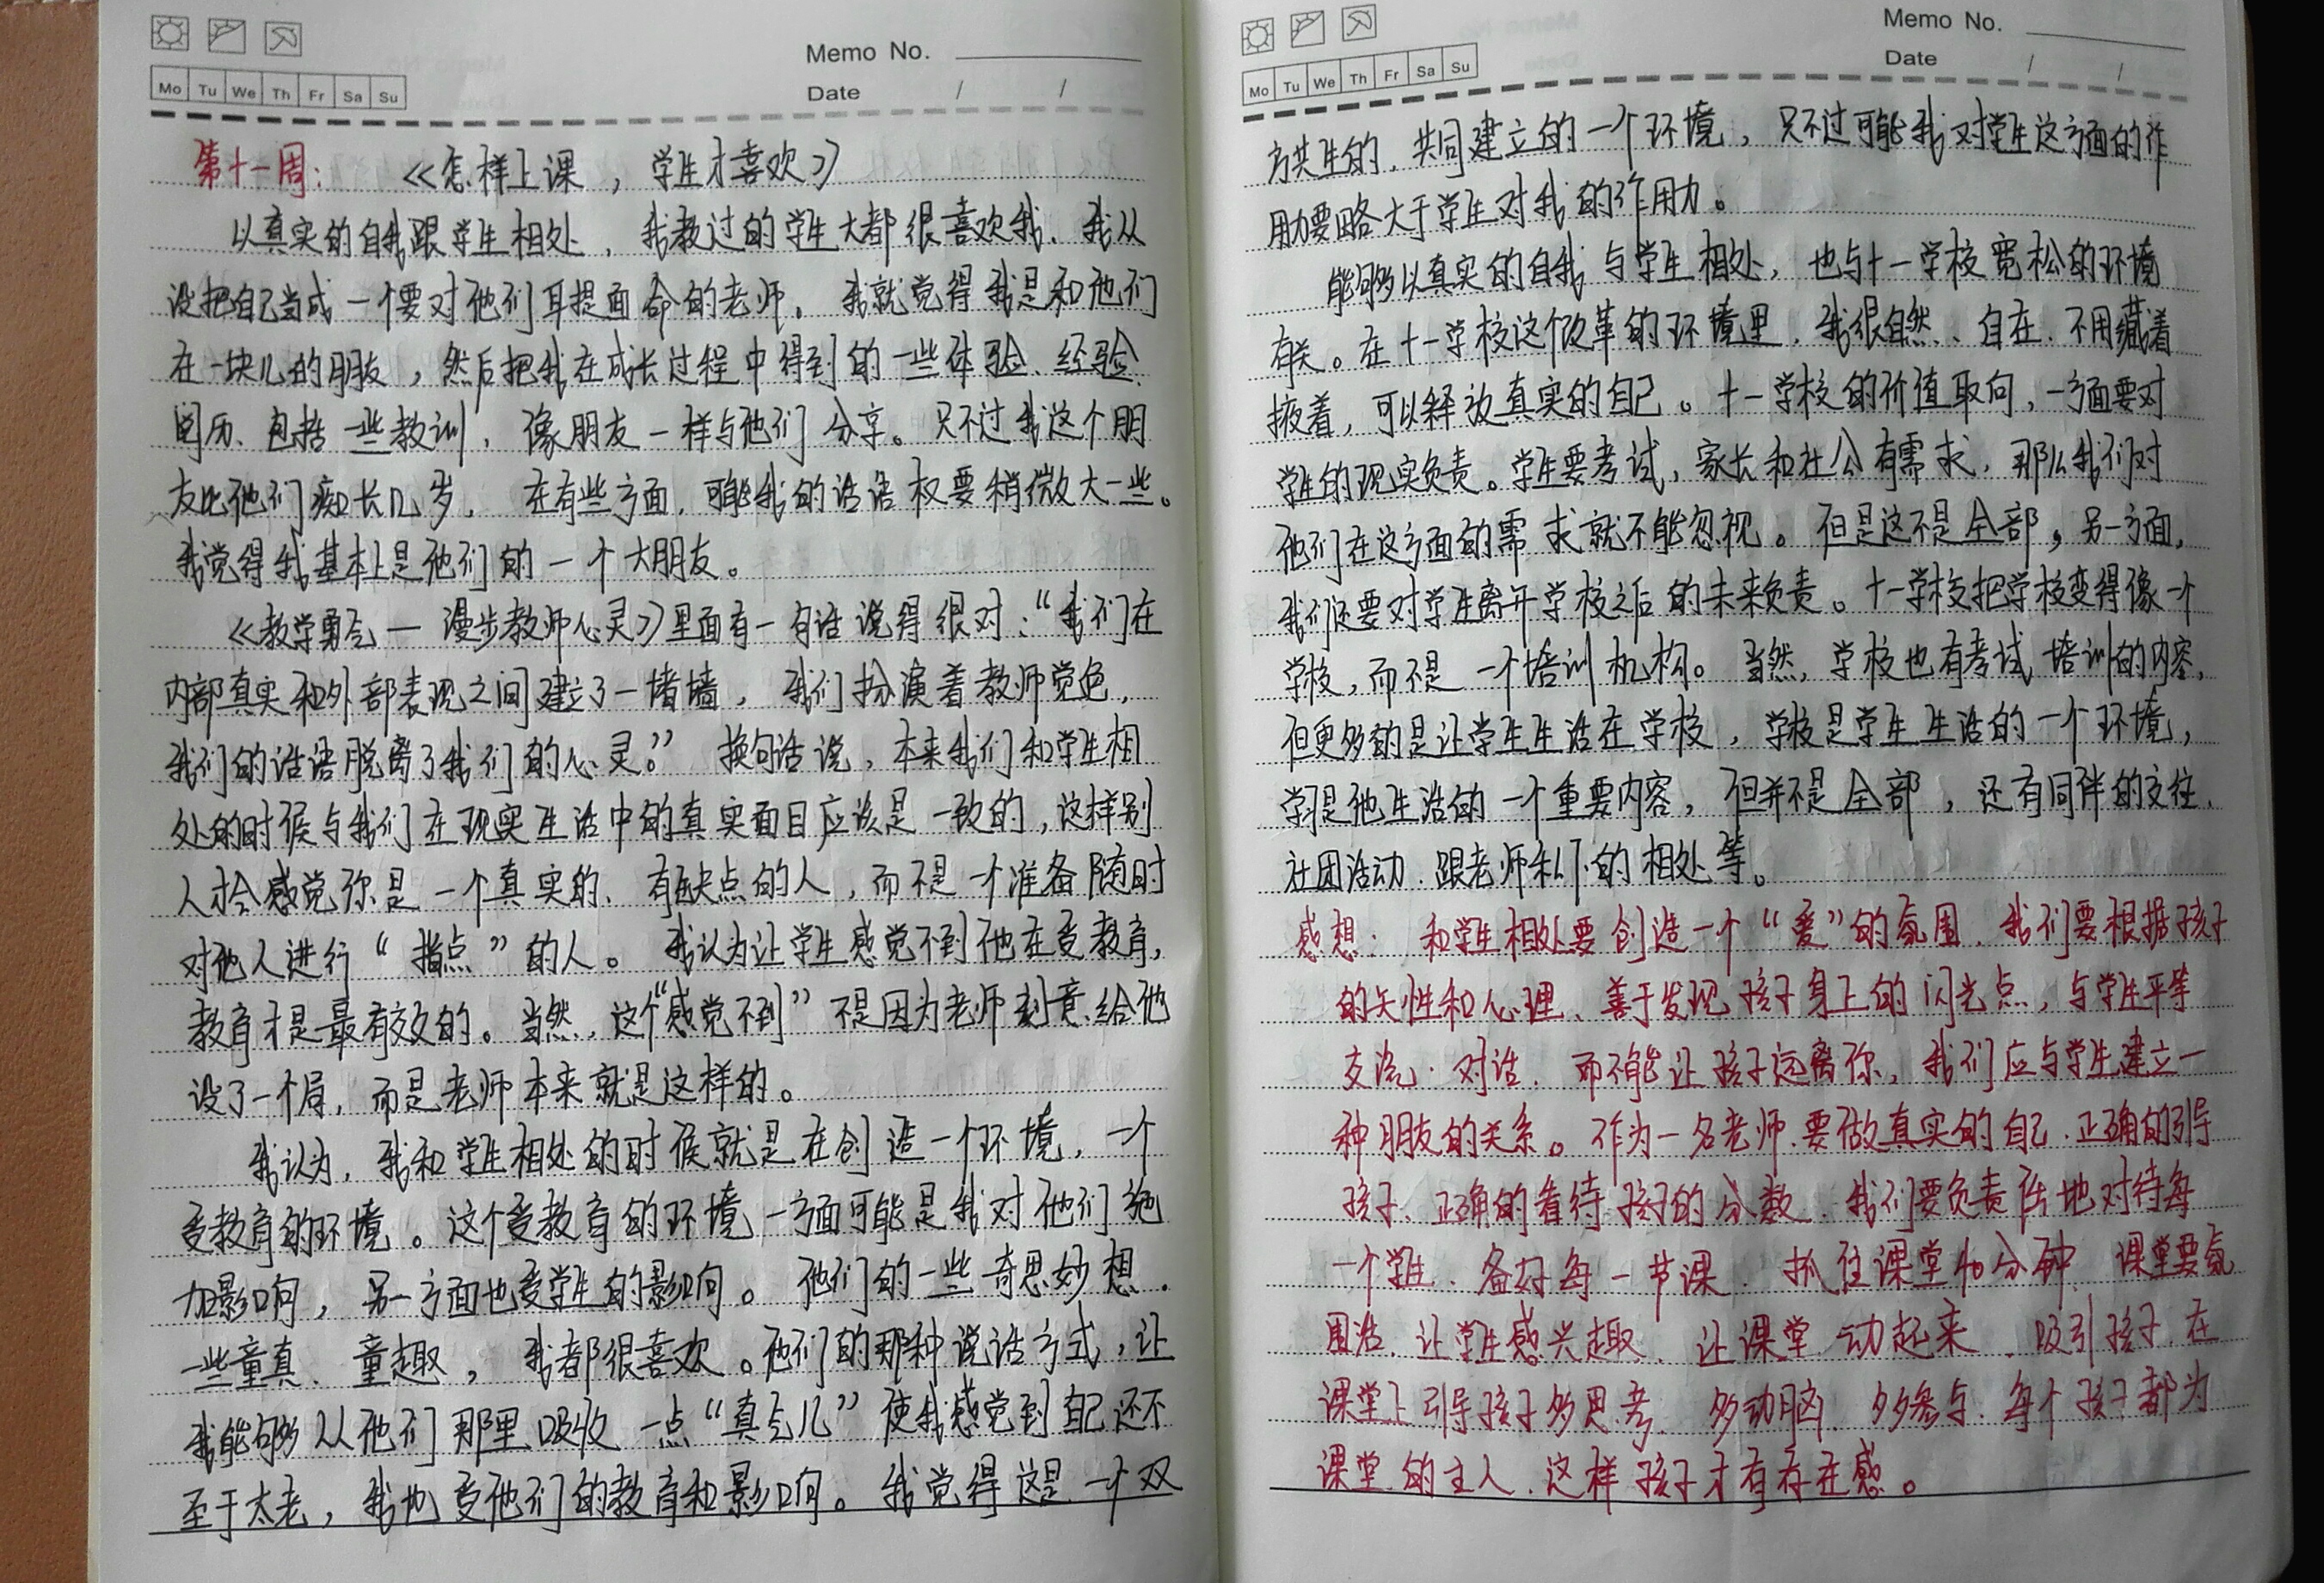 Memo No.
Mo Tu We Th Fr Sa Su
Date / /
第十一周: 《怎样上课，学生才喜欢》
以真实的自我跟学生相处，我教过的学生大都很喜欢我、我从
没把自己当成一个要对他们耳提面命的老师。我就觉得我是和他们
在一块儿的朋友，然后把我在成长过程中得到的一些体验、经验、
阅历、包括一些教训，像朋友一样与他们分享。只不过我这个朋
友比他们痴长几岁，在有些方面，可能我的话语权要稍微大一些。
我觉得我基本上是他们的一个大朋友。
《教学勇气—漫步教师心灵》里面有一句话说得很对：“我们在
内部真实和外部表现之间建立了一堵墙，我们扮演着教师觉色，
我们的话语脱离了我们的心灵。”换句话说，本来我们和学生相
处的时候与我们在现实生活中的真实面目应该是一致的，这样别
人才会感觉你是一个真实的、有缺点的人，而不是一个准备随时
对他人进行“指点”的人。我认为让学生感觉不到他在受教育，
教育才是最有效的。当然，这个“感觉不到”不是因为老师刻意给他
设了一个局，而是老师本来就是这样的。
我认为，我和学生相处的时候就是在创造一个环境，一个
受教育的环境。这个受教育的环境一方面可能是我对他们施
加影响，另一方面也受学生的影响。他们的一些奇思妙想、
一些童真、童趣，我都很喜欢。他们的那种说话方式，让
我能够从他们那里吸收一点“真气儿”使我感觉到自己还不
至于太老，我也受他们的教育和影响。我觉得这是一个双
Memo No.
Mo Tu We Th Fr Sa Su
Date / /
方共生的，共同建立的一个环境，只不过可能我对学生这方面的作
用力要略大于学生对我的作用力。
能够以真实的自我与学生相处，也与十一学校宽松的环境
有关。在十一学校这个改革的环境里，我很自然、自在、不用藏着
掖着，可以释放真实的自己。十一学校的价值取向，一方面要对
学生的现实负责。学生要考试，家长和社公有需求，那么我们对
他们在这方面的需求就不能忽视。但是这不是全部，另一方面，
我们还要对学生离开学校之后的未来负责。十一学校把学校变得像一个
学校，而不是一个培训机构。当然，学校也有考试、培训的内容，
但更多的是让学生生活在学校，学校是学生生活的一个环境，
学习是他生活的一个重要内容，但并不是全部，还有同伴的交往、
社团活动、跟老师私下的相处等。
感想：和学生相处要创造一个“爱”的氛围、我们要根据孩子
的天性和心理、善于发现孩子身上的闪光点，与学生平等
交流、对话、而不能让孩子远离你，我们应与学生建立一
种朋友的关系。作为一名老师、要做真实的自己、正确的引导
孩子、正确的看待孩子的分数、我们要负责任地对待每
一个学生、备好每一节课、抓住课堂40分钟、课堂要氛
围活、让学生感兴趣、让课堂动起来、吸引孩子、在
课堂上引导孩子多思考、多动脑、多参与、每个孩子都为
课堂的主人、这样孩子才有存在感。